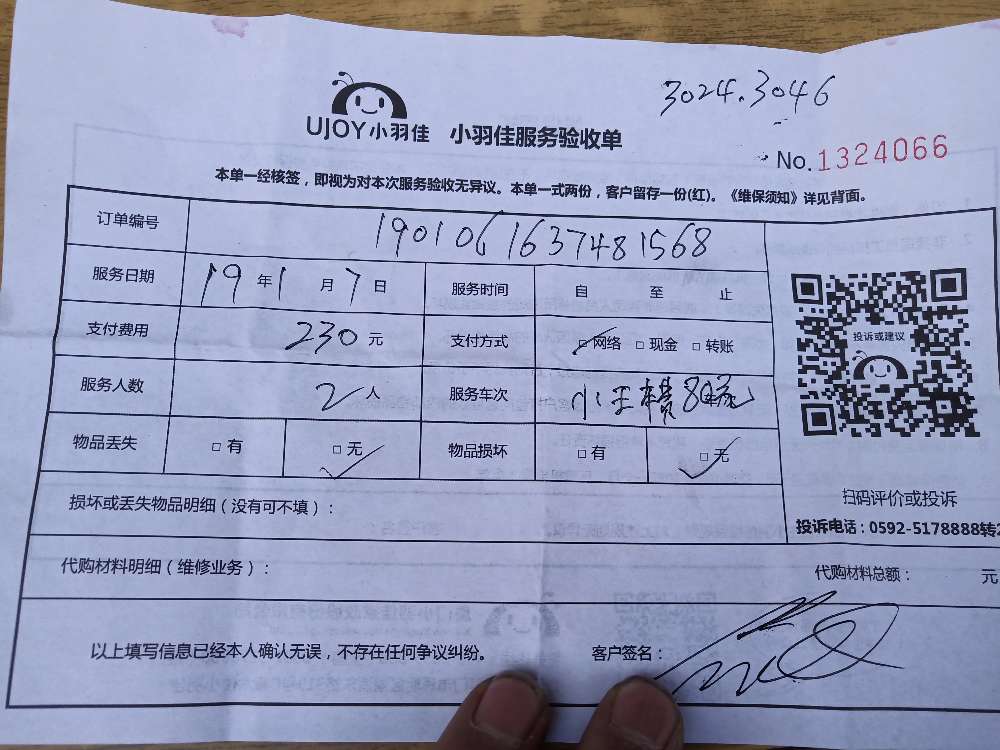 3024.3046
UJOY小羽佳 小羽佳服务验收单
No.1324066
本单一经核签，即视为对本次服务验收无异议。本单一式两份，客户留存一份(红)。《维保须知》详见背面。
订单编号 190106163748 1568
服务日期 19年1月7日 服务时间 自 至 止
支付费用 230元 支付方式 □网络 □现金 □转账
投诉或建议
服务人数 2人 服务车次 小王楼
物品丢失 □有 □无 物品损坏 □有 □无
扫码评价或投诉
损坏或丢失物品明细（没有可不填）：
投诉电话：0592-5178888转2
代购材料明细（维修业务）： 代购材料总额： 元
以上填写信息已经本人确认无误，不存在任何争议纠纷。 客户签名：